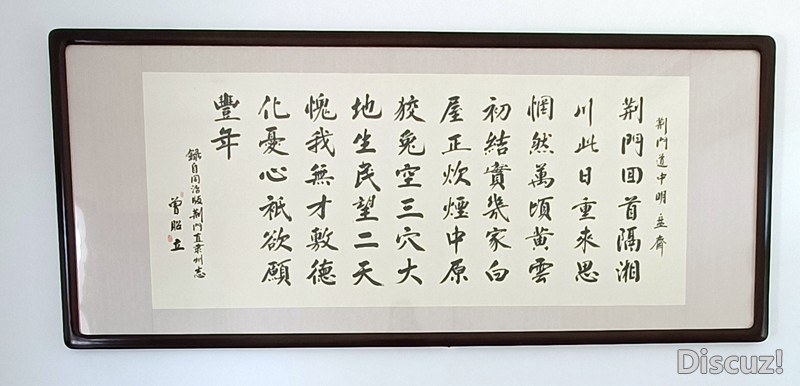 荆門道中明孟齋
荆門回首隔湘
川此日重來思
惘然萬頃黄雲
初結實幾家白
屋正炊煙中原
狡兔空三穴大
地生民望二天
愧我無才敷德
化憂心祇欲願
豐年
錄自同治版荆門直隶州志
曾昭立
Discuz!